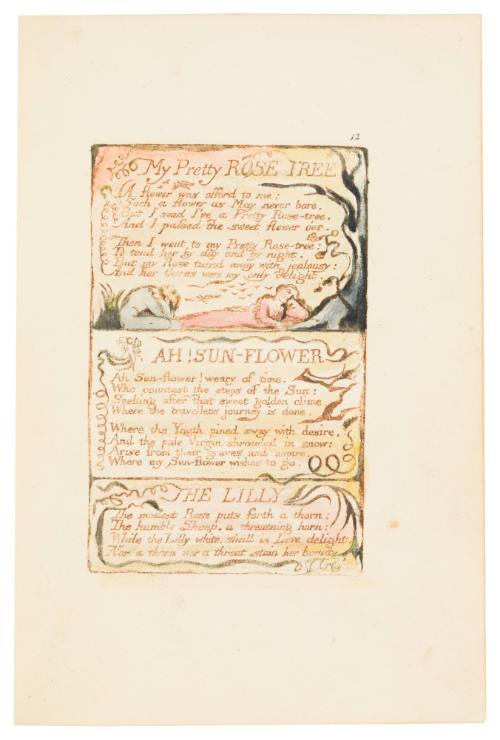 12
My Pretty ROSE TREE
A flower was offerd to me:
Such a flower as May never bore.
But I said I've a Pretty Rose-tree.
And I passed the sweet flower oer.
Then I went to my Pretty Rose-tree:
To tend her by day and by night.
But my Rose turnd away with jealousy:
And her thorns were my only delight.
AH! SUN-FLOWER
Ah Sun-flower! weary of time.
Who countest the steps of the Sun:
Seeking after that sweet golden clime
Where the travellers journey is done.
Where the Youth pined away with desire,
And the pale Virgin shrouded in snow:
Arise from their graves and aspire,
Where my Sun-flower wishes to go.
THE LILLY
The modest Rose puts forth a thorn:
The humble Sheep, a threatning horn:
While the Lilly white, shall in Love delight,
Nor a thorn nor a threat stain her beauty bright